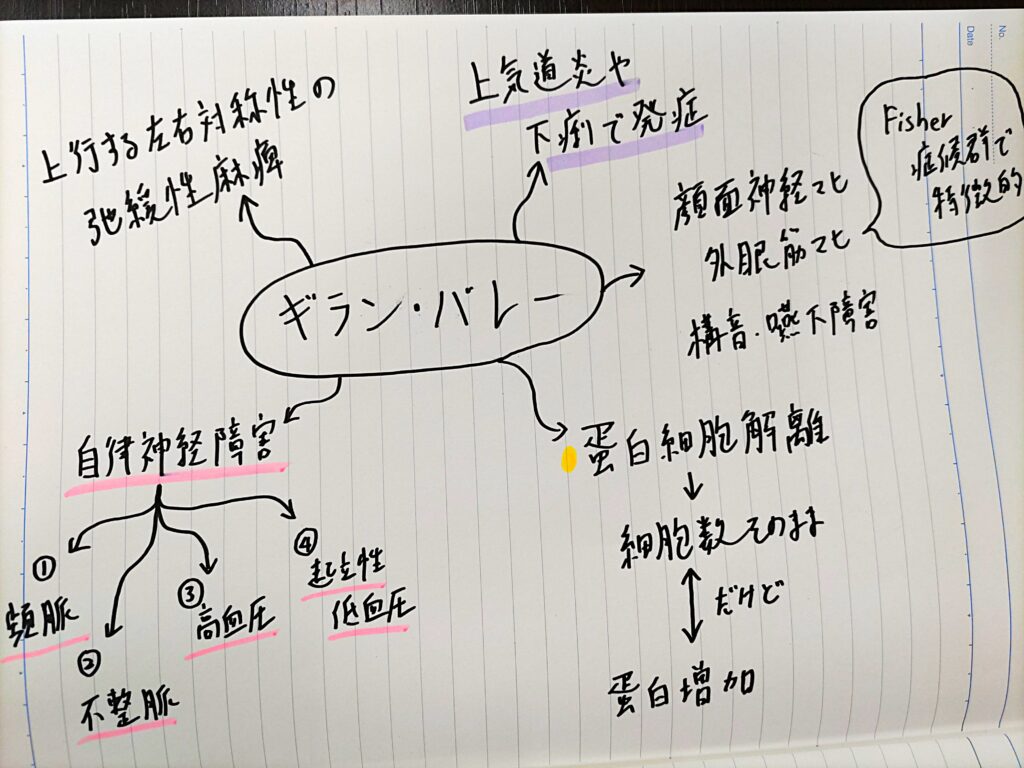 No.
Date
上気道炎や
下痢で発症
上行する左右対称性の
弛緩性麻痺
Fisher
症候群で
特徴的
顔面神経マヒ
外眼筋マヒ
構音・嚥下障害
ギラン・バレー
自律神経障害
①
頻脈
②
不整脈
③
高血圧
④
起立性
低血圧
蛋白細胞解離
細胞数そのまま
だけど
蛋白増加